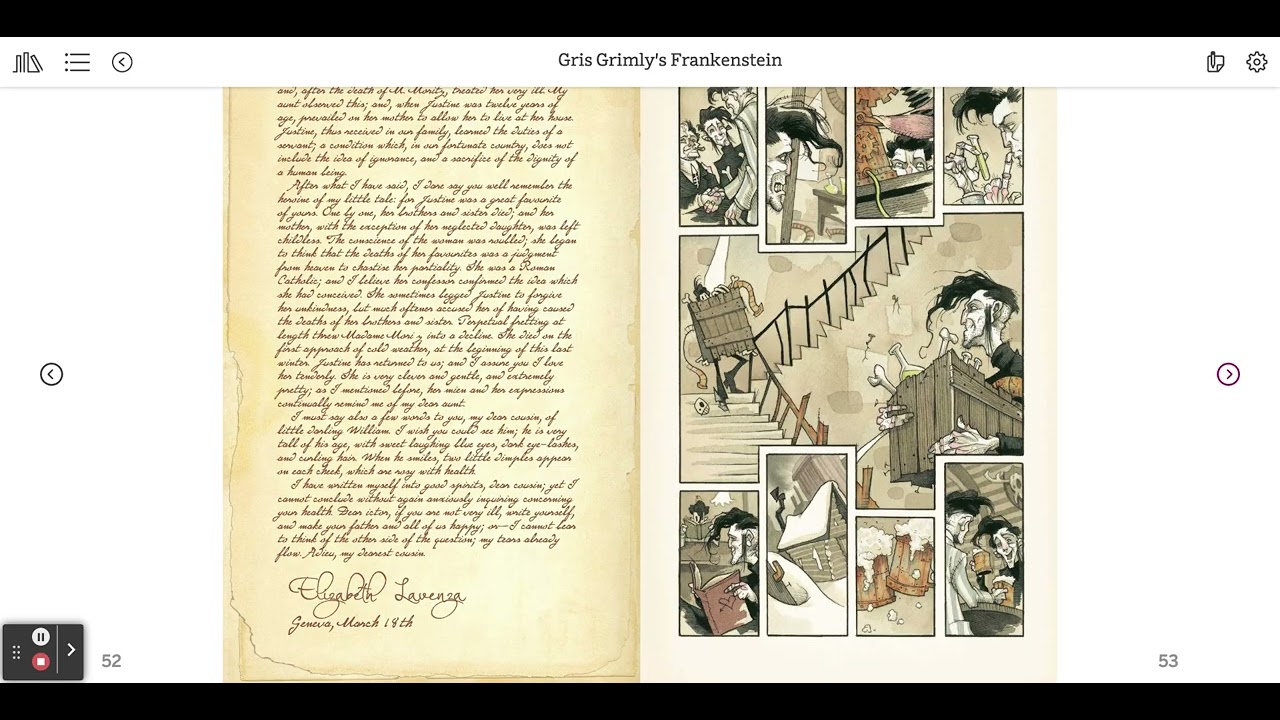 Gris Grimly's Frankenstein
and, after the death of M. Moritz, treated her very ill. My
aunt observed this; and, when Justine was twelve years of
age, prevailed on her mother to allow her to live at her house.
Justine, thus received in our family, learned the duties of a
servant; a condition which, in our fortunate country, does not
include the idea of ignorance, and a sacrifice of the dignity of
a human being.
After what I have said, I dare say you well remember the
heroine of my little tale: for Justine was a great favourite
of yours. One by one, her brothers and sister died; and her
mother, with the exception of her neglected daughter, was left
childless. The conscience of the woman was roubled; she began
to think that the deaths of her favourites was a judgment
from heaven to chastise her partiality. She was a Roman
Catholic; and I believe her confessor confirmed the idea which
she had conceived. She sometimes begged Justine to forgive
her unkindness, but much oftener accused her of having caused
the deaths of her brothers and sister. Perpetual fretting at
length threw Madame Mori z into a decline. She died on the
first approach of cold weather, at the beginning of this last
winter. Justine has returned to us; and I assure you I love
her tenderly. She is very clever and gentle, and extremely
pretty; as I mentioned before, her mien and her expressions
continually remind me of my dear aunt.
I must say also a few words to you, my dear cousin, of
little darling William. I wish you could see him; he is very
tall of his age, with sweet laughing blue eyes, dark eye-lashes,
and curling hair. When he smiles, two little dimples appear
on each cheek, which are rosy with health.
I have written myself into good spirits, dear cousin; yet I
cannot conclude without again anxiously inquiring concerning
your health. Dear ictor, if you are not very ill, write yourself,
and make your father and all of us happy; or—I cannot bear
to think of the other side of the question; my tears already
flow. Adieu, my dearest cousin.
Elizabeth Lavenza
Geneva, March 18th
52
53